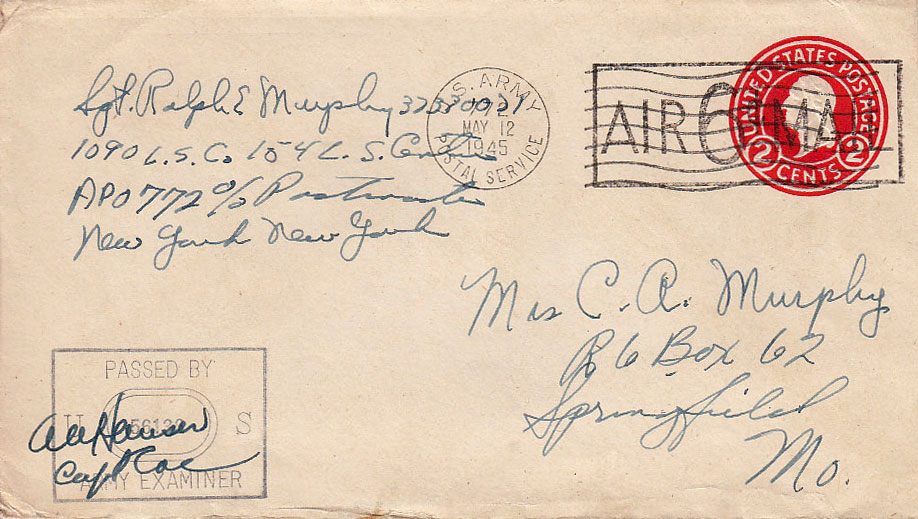 Sgt. Ralph E Murphy
1090 L.S.Co 154 L.S. Center
APO 772 c/o Postmaster
New York New York
U.S. ARMY
772
MAY 12
1945
POSTAL SERVICE
AIR 6¢ MAIL
UNITED STATES POSTAGE
2 CENTS 2
Mrs C. A. Murphy
R 6 Box 62
Springfield
Mo.
PASSED BY
U S
ARMY EXAMINER